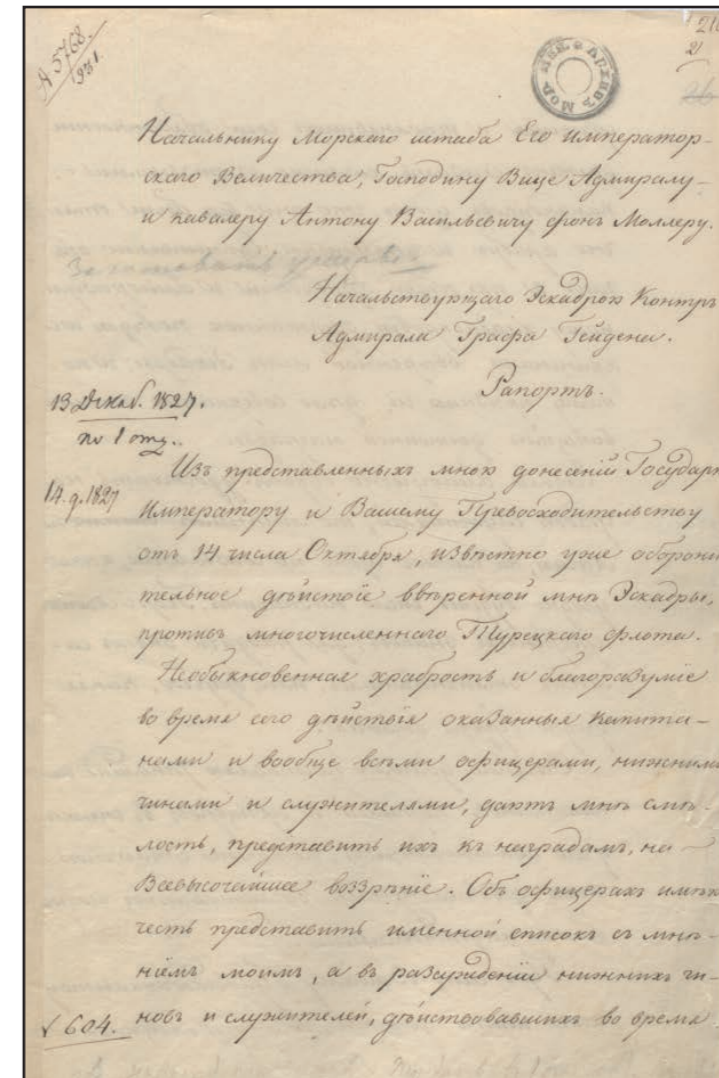 А 5768.
1931.
21
Начальнику Морскаго штаба Его Император-
скаго Величества, Господину Вице Адмиралу
и кавалеру Антону Васильевичу фонъ Моллеру.
Начальствующаго Эскадрою Контръ
Адмирала Графа Гейдена.
Рапортъ.
13 Декаб. 1827.
по 1 отд.
14. д. 1827
Изъ представленныхъ мною донесеній Государю
Императору и Вашему Превосходительству
отъ 14 числа Октября, извѣстно уже оборони-
тельное дѣйствіе ввѣренной мнѣ Эскадры,
противъ многочисленнаго Турецкаго флота.
Необыкновенная храбрость и благоразуміе
во время сего дѣйствія оказанныя Капита-
нами и вообще всѣми офицерами, нижними
чинами и служителями, даютъ мнѣ смѣ-
лость, представить ихъ къ наградамъ, на
Всевысочайшее воззрѣніе. Объ офицерахъ имѣю
честь представить именной списокъ съ мнѣ-
ніемъ моимъ, а въ разсужденіи нижнихъ чи-
новъ и служителей, дѣйствовавшихъ во время
604.